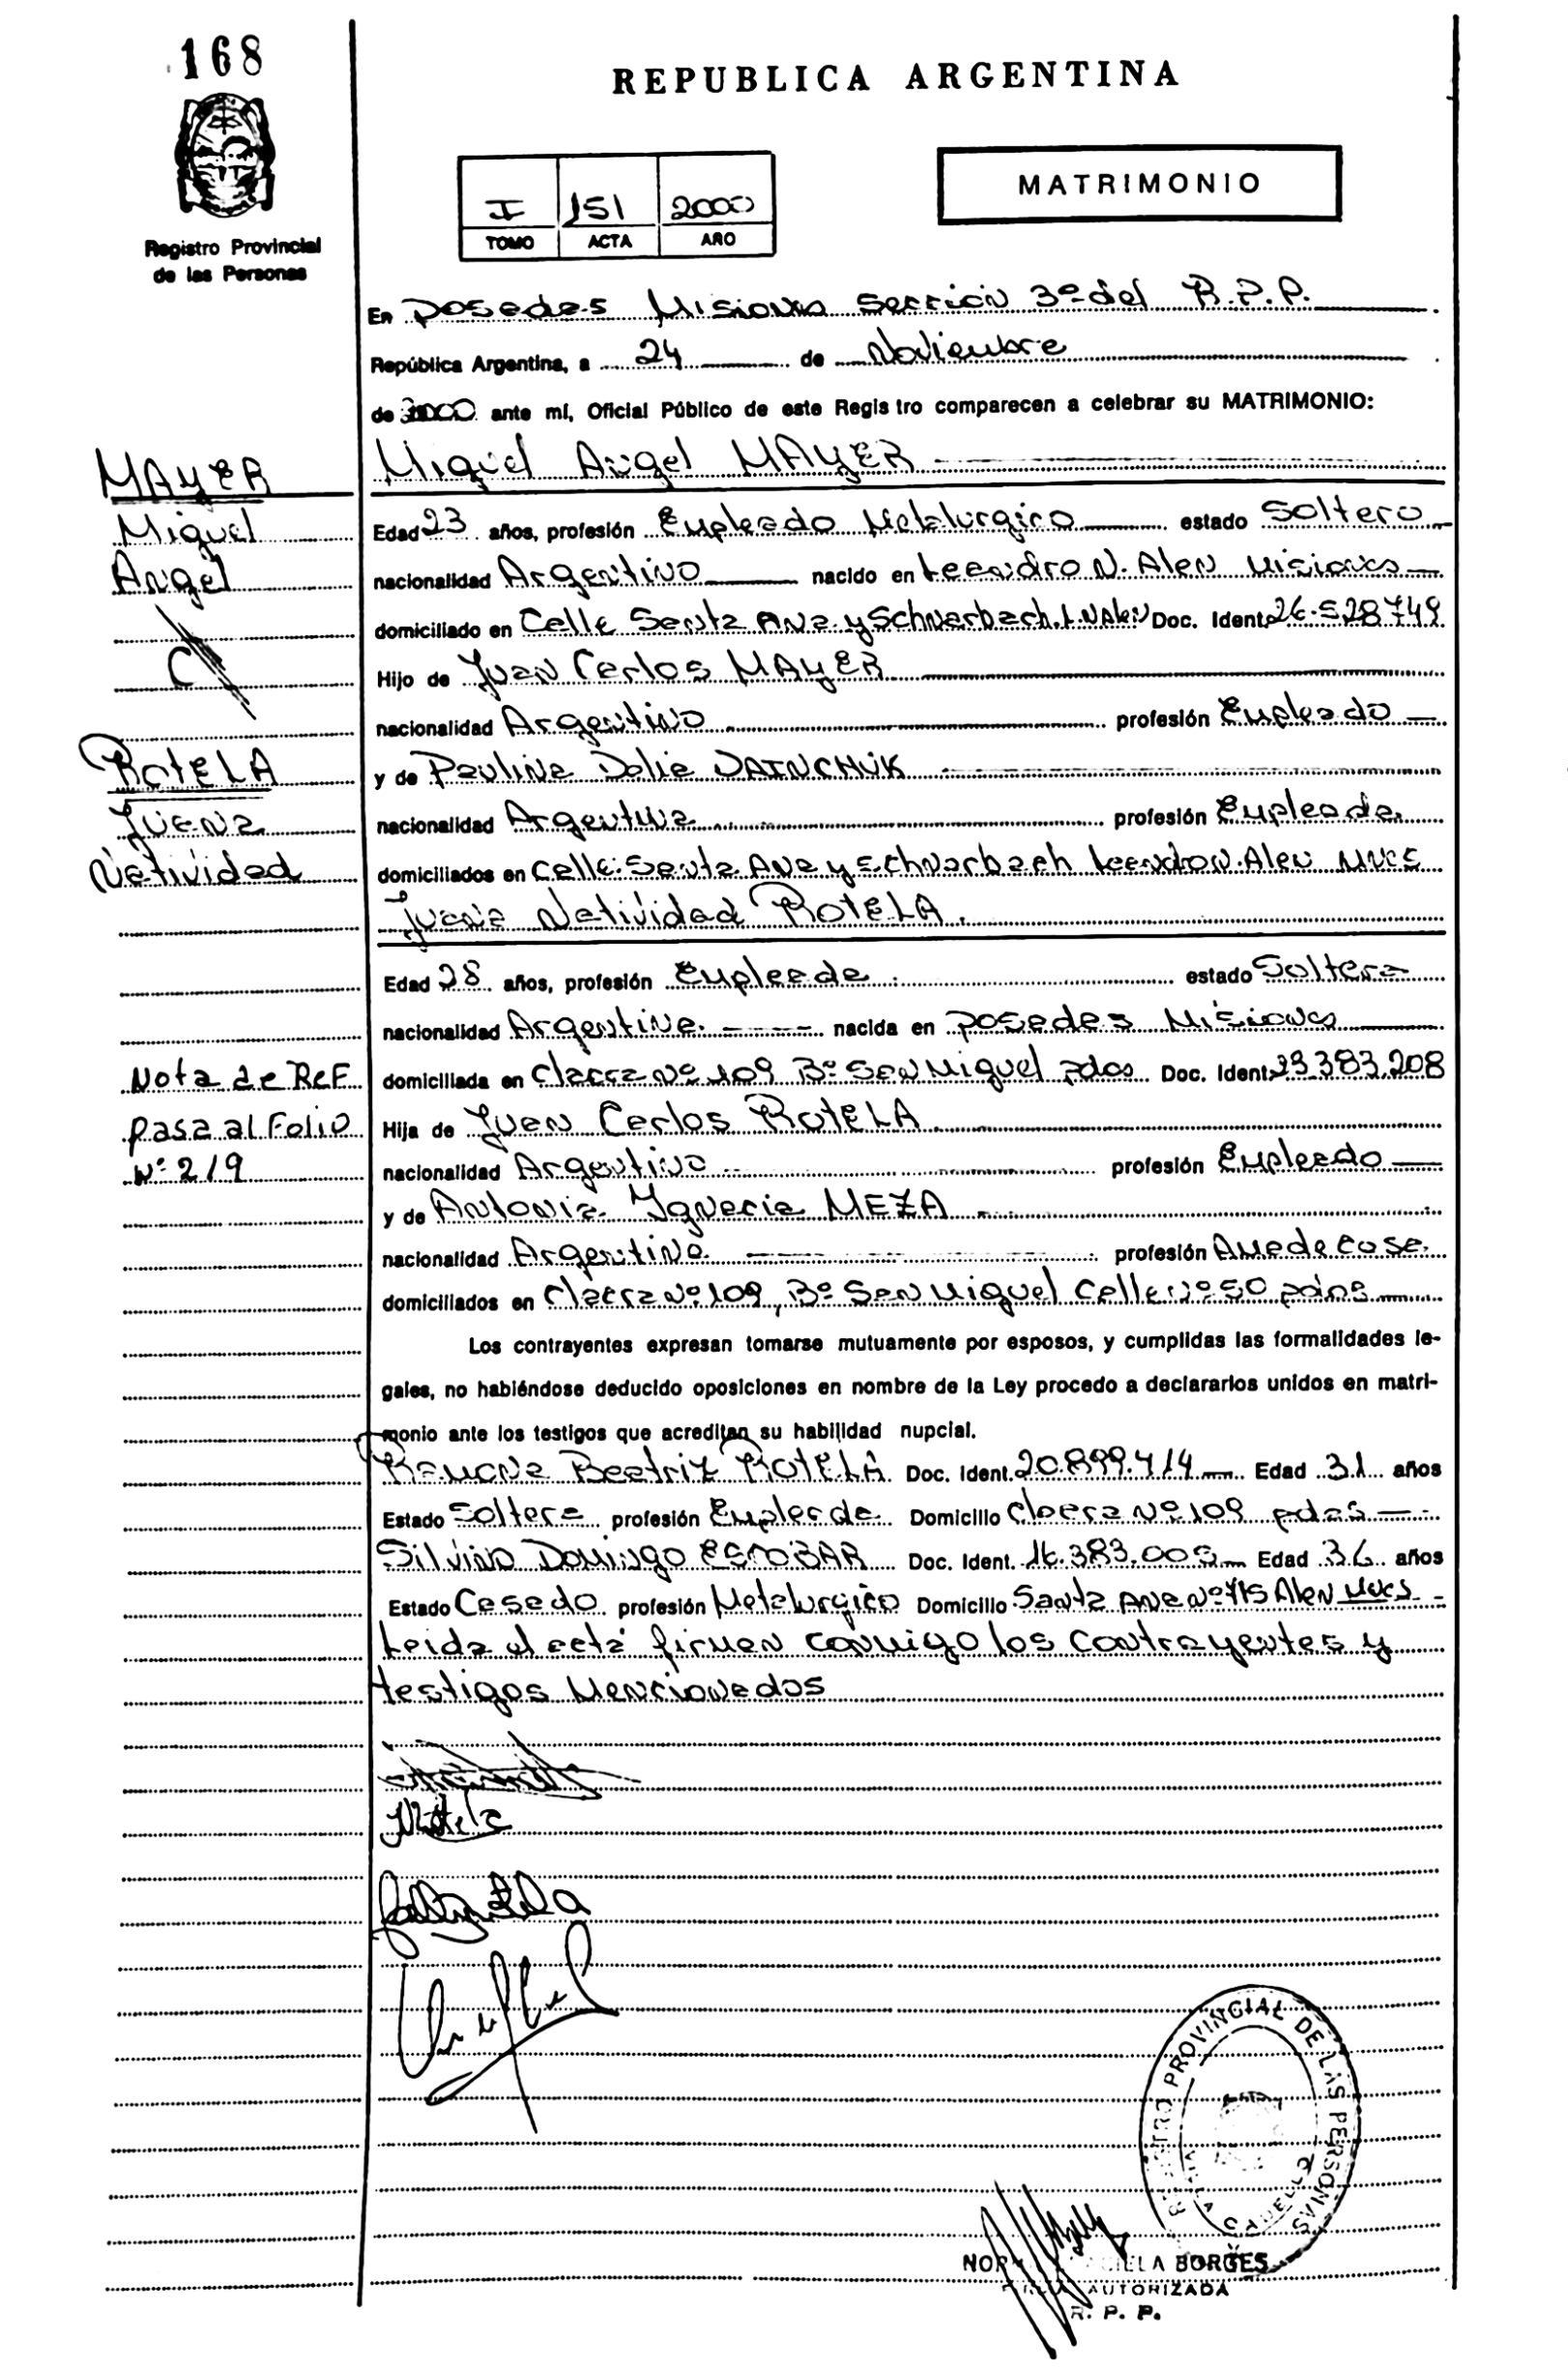 168
REPUBLICA ARGENTINA
MATRIMONIO
I 151 2000
TOMO ACTA AÑO
Registro Provincial
de las Personas
En Posadas Misiones Sección 3º del R.P.P.
República Argentina, a 24 de Noviembre
de 2000 ante mí, Oficial Público de este Regis tro comparecen a celebrar su MATRIMONIO:
MAYER
Miguel
Angel
Miguel Angel MAYER
Edad 23 años, profesión Empleado Metalurgico estado Soltero
nacionalidad Argentino nacido en Leandro N. Alen Misiones
domiciliado en Calle Santa Ana y Schwarbach. Doc. Ident. 26.528749
Hijo de Juan Carlos MAYER
nacionalidad Argentino profesión Empleado
ROTELA
Juana
Natividad
y de Paulina Dolia DAINCHUK
nacionalidad Argentina profesión Empleada
domiciliados en Calle Santa Ana y Schwarbach Leandro N. Alen
Juana Natividad ROTELA.
Edad 28 años, profesión Empleada estado Soltera
nacionalidad Argentina nacida en Posadas Misiones
Nota de REF
pasa al Folio
Nº 219
domiciliada en Chacra Nº 109 Bº San Miguel pdas Doc. Ident. 23.383.208
Hija de Juan Carlos ROTELA
nacionalidad Argentino profesión Empleado
y de Antonia Ignacia MEZA
nacionalidad Argentina profesión Ama de casa
domiciliados en Chacra Nº 109, Bº San Miguel Calle Nº 50 pdas
Los contrayentes expresan tomarse mutuamente por esposos, y cumplidas las formalidades le-
gales, no habiéndose deducido oposiciones en nombre de la Ley procedo a declararlos unidos en matri-
monio ante los testigos que acreditan su habilidad nupcial.
Ramona Beatriz ROTELA Doc. Ident. 20.899.414 Edad 31 años
Estado Soltera profesión Empleada Domicilio Chacra Nº 109 pdas
Silvino Domingo ESCOBAR Doc. Ident. 16.383.005 Edad 36 años
Estado Casado profesión Metalurgico Domicilio Santa Ana Nº 715 Alen
Leida el acta firman conmigo los contrayentes y
testigos Mencionados
REGISTRO PROVINCIAL DE LAS PERSONAS
BORGES
AUTORIZADA
R. P. P.